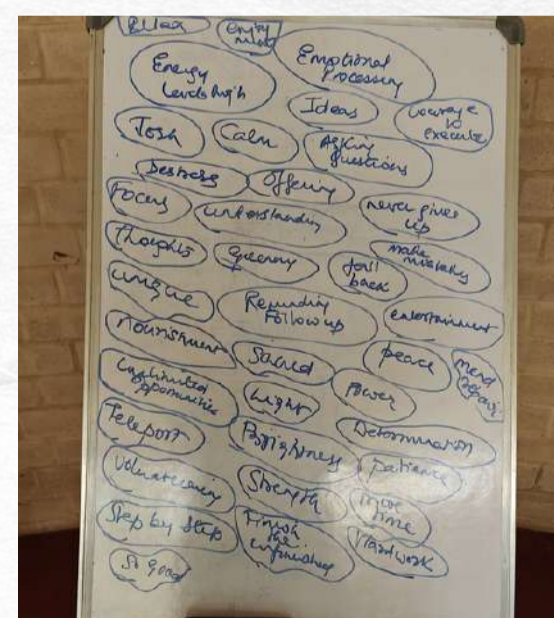 Relax
Empty
mind
Emotional
Processing
Energy
Levels high
Ideas
courage
to
execute
Josh
Calm
Asking
questions
Destress
Offering
Focus
understanding
never gives
up
Thoughts
Greenery
fall
back
make
mistakes
unique
Reminding
Follow up
entertainment
nourishment
Sacred
peace
mend
repair
unlimited
opportunities
Light
Power
Teleport
Brightness
Determination
Patience
Volunteering
Strength
more
time
Step by Step
Finish
the
unfinished
Hardwork
So good